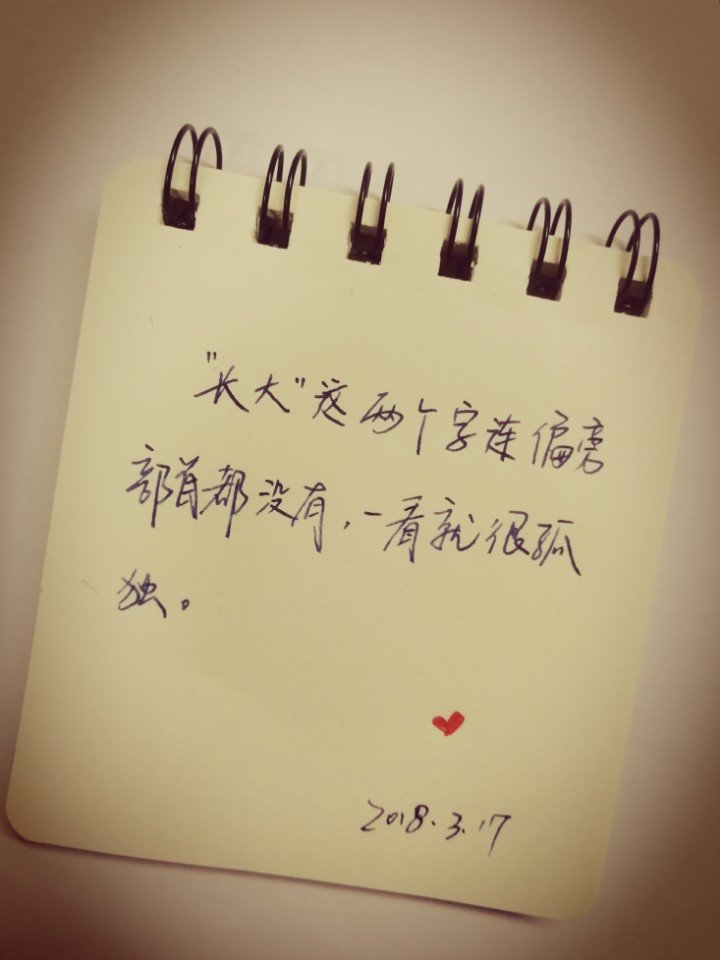 "长大"这两个字连偏旁
部首都没有,一看就很孤
独。
2018.3.17